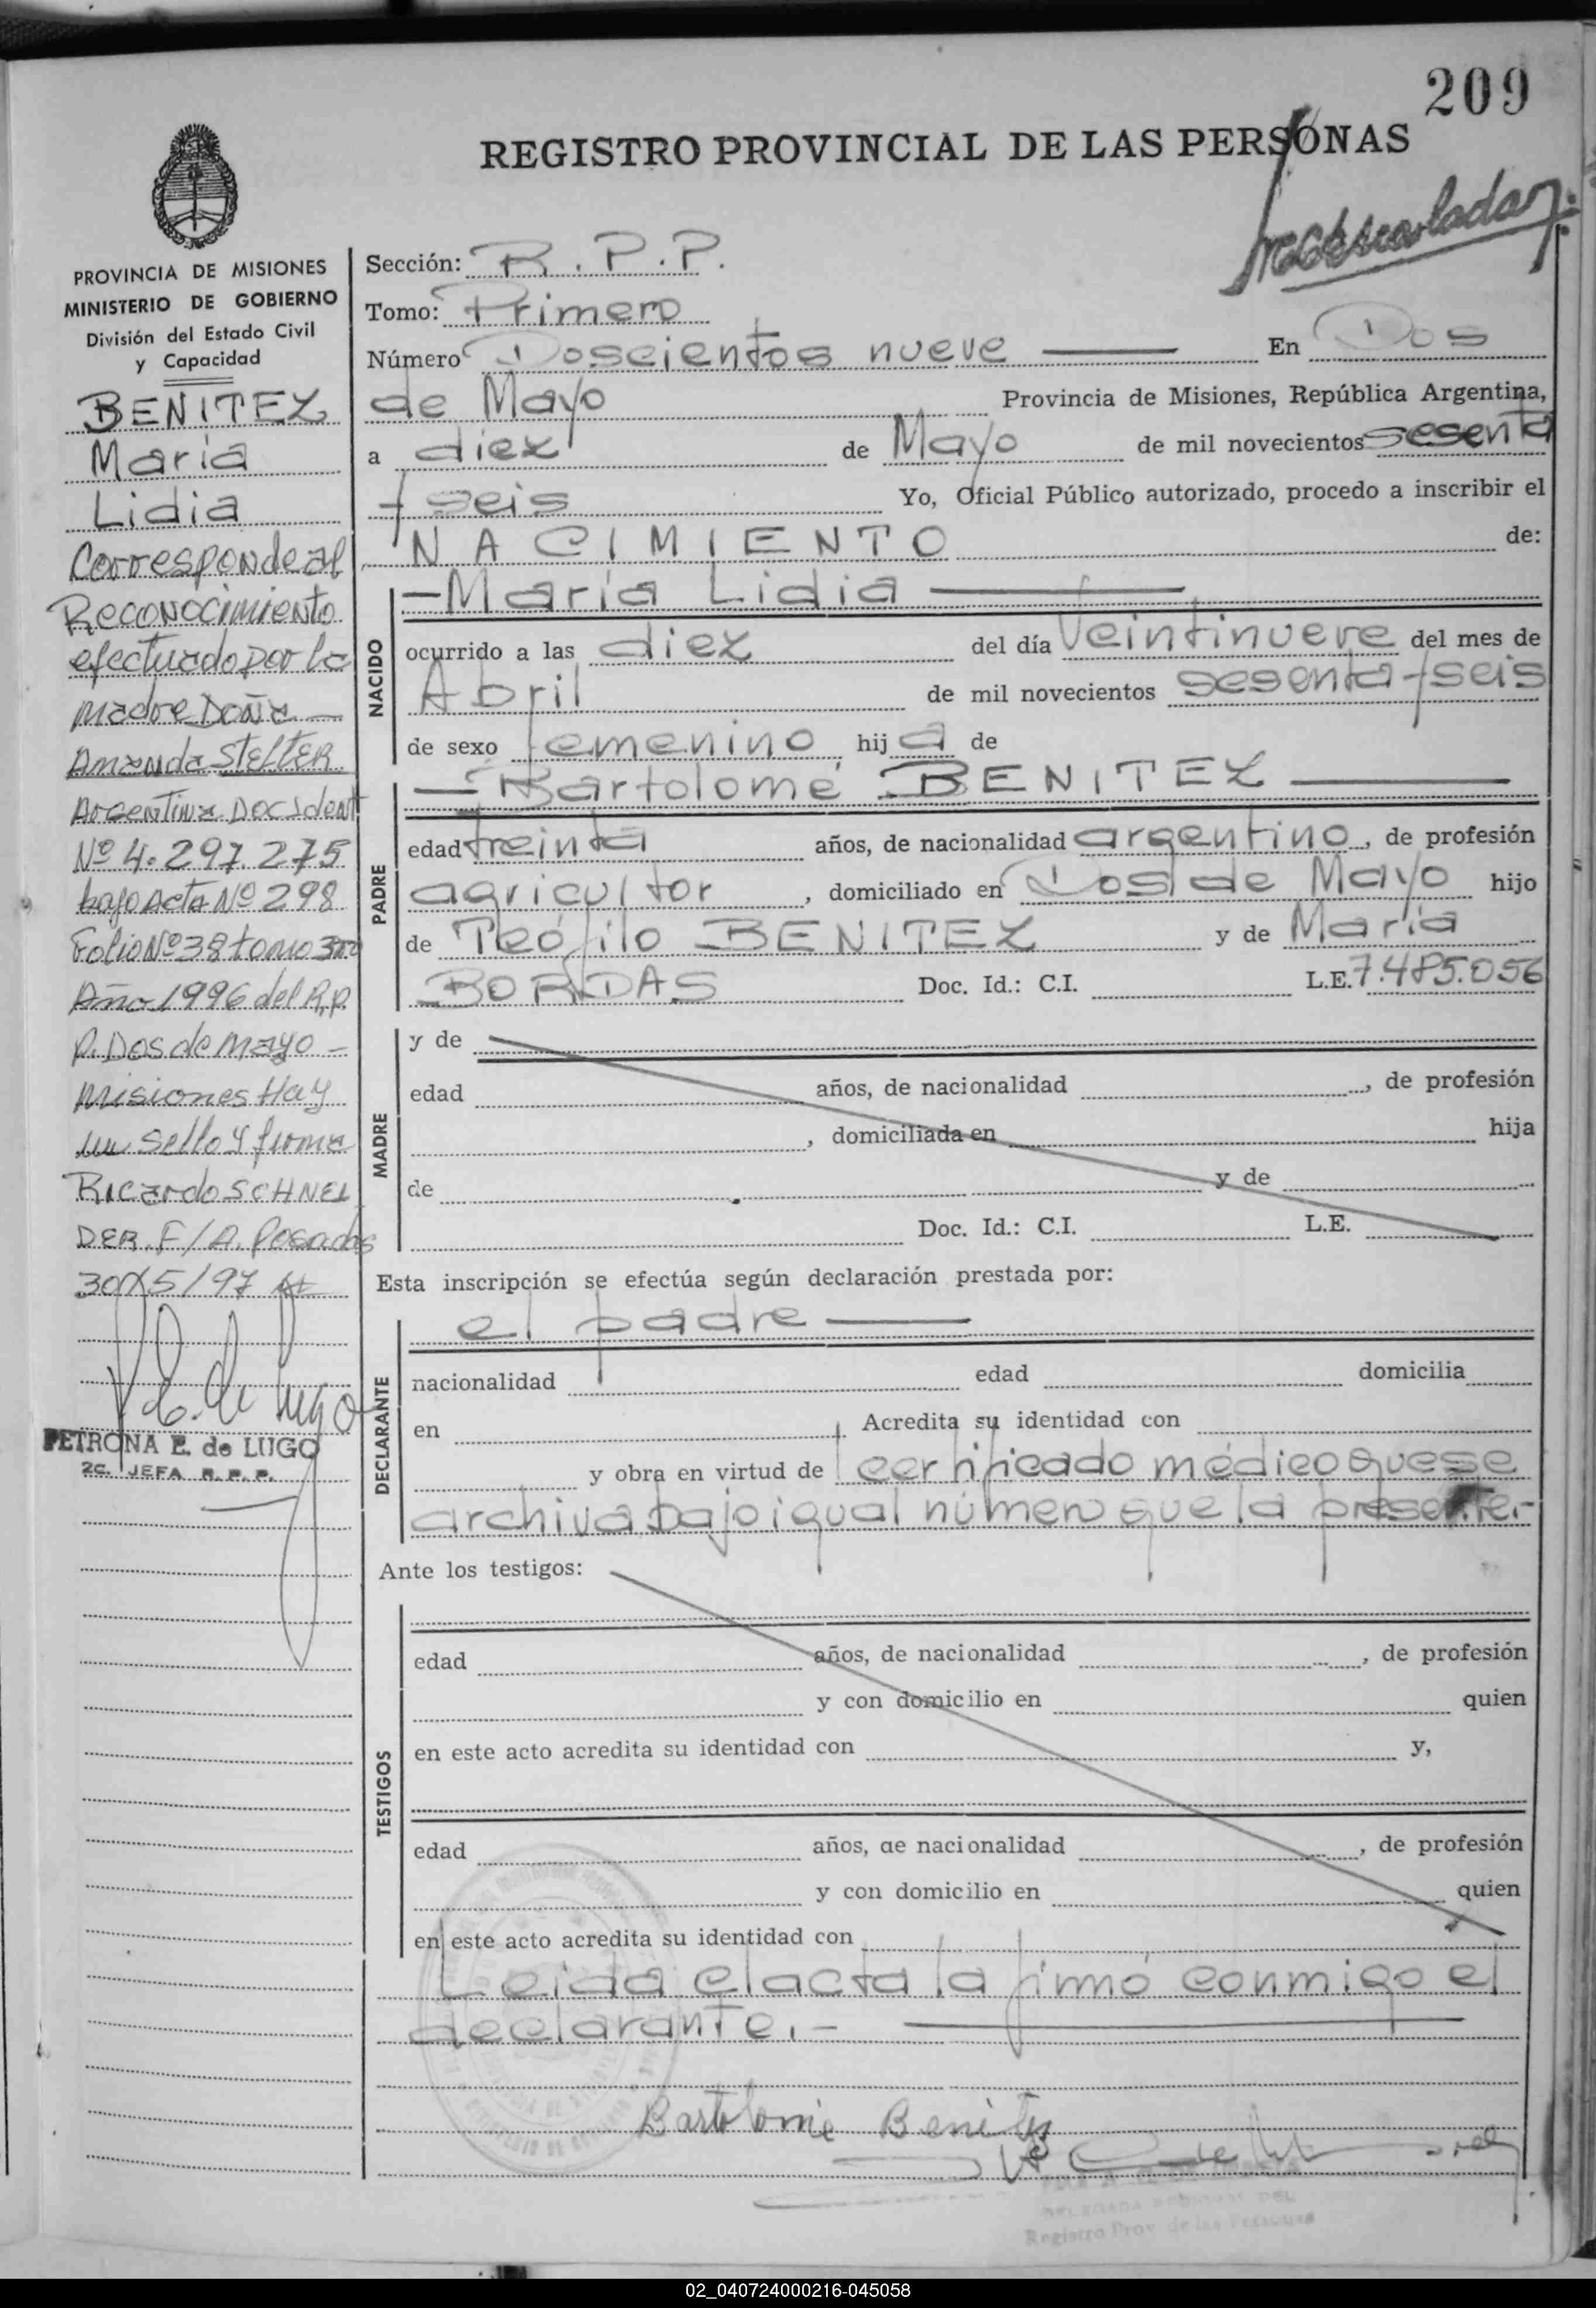 209
REGISTRO PROVINCIAL DE LAS PERSONAS
PROVINCIA DE MISIONES
MINISTERIO DE GOBIERNO
División del Estado Civil
y Capacidad
BENITEZ
María
Lidia
Corresponde al
Reconocimiento
efectuado por la
madre DOÑA —
Amanda STELTER
Argentina Doc Ident
Nº 4.297.275
bajo Acta Nº 298
Folio Nº 38 tomo 3ro
Año 1996 del R.P.
P. Dos de Mayo —
Misiones Hay
un sello y firma
Ricardo SCHNEI
DER. F/A. Posadas
30/5/97
PETRONA E. de LUGO
2a. JEFA R. P. P.
Sección: R. P. P.
Tomo: Primero
Número Doscientos nueve — En Dos
de Mayo Provincia de Misiones, República Argentina,
a diez de Mayo de mil novecientos sesenta
y seis Yo, Oficial Público autorizado, procedo a inscribir el
NACIMIENTO de:
NACIDO
— María Lidia —
ocurrido a las diez del día veintinueve del mes de
Abril de mil novecientos sesenta y seis
de sexo femenino hija de
PADRE
— Bartolomé BENITEZ —
edad treinta años, de nacionalidad argentino, de profesión
agricultor, domiciliado en Dos de Mayo hijo
de Teófilo BENITEZ y de María
BORDAS Doc. Id.: C.I. L.E. 7.485.056
MADRE
y de
edad años, de nacionalidad , de profesión
, domiciliada en hija
de y de
Doc. Id.: C.I. L.E.
Esta inscripción se efectúa según declaración prestada por:
DECLARANTE
el padre —
nacionalidad edad domicilia
en Acredita su identidad con
y obra en virtud de certificado médico que se
archiva bajo igual número que la presente.-
Ante los testigos:
TESTIGOS
edad años, de nacionalidad , de profesión
y con domicilio en quien
en este acto acredita su identidad con y,
edad años, de nacionalidad , de profesión
y con domicilio en quien
en este acto acredita su identidad con
Leida el acta la firmó conmigo el
declarante.- —
Bartolomé Benitez
Registro Prov. de las Personas
02_040724000216-045058